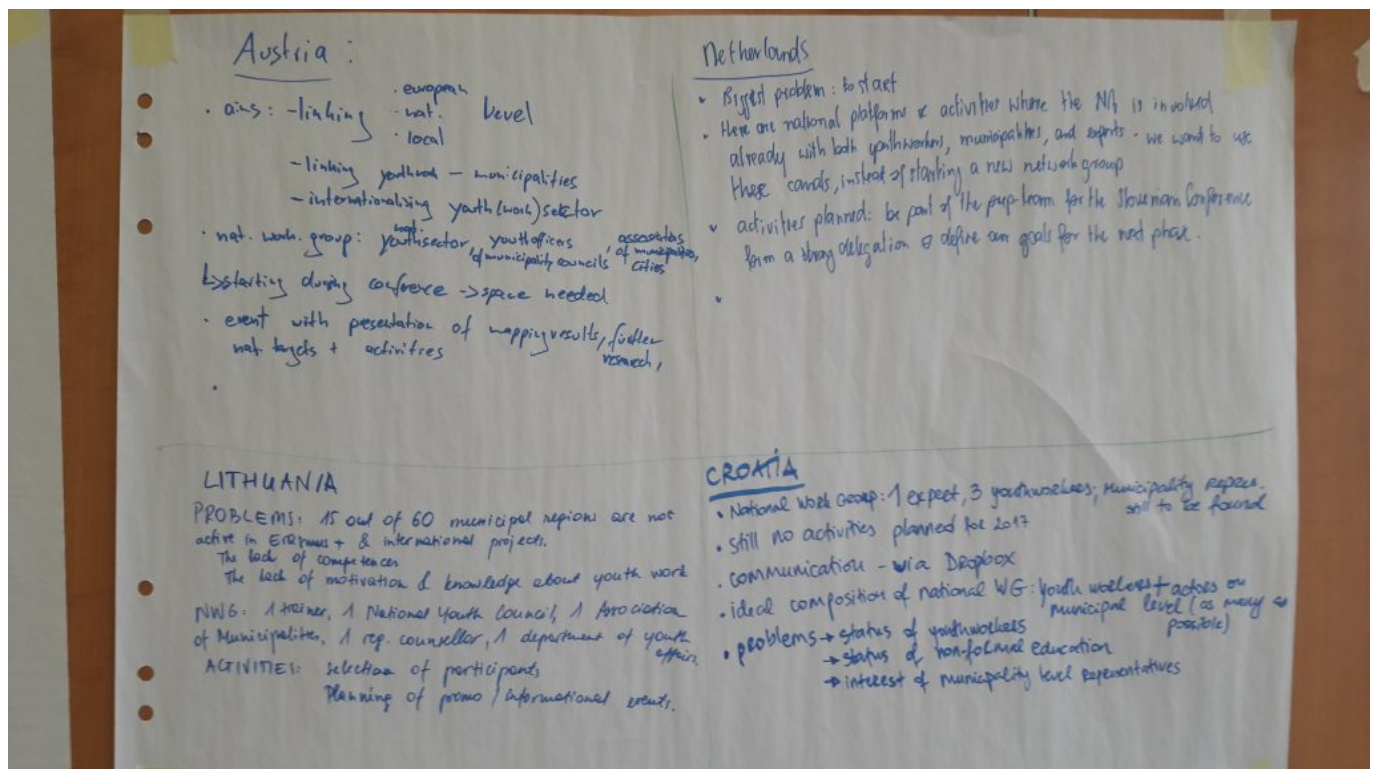 Austria :
· aims: - linking · european
· nat. level
· local
- linking youthwork - municipalities
- internationalizing youth (work) sector
· nat. work. group: nat. youthsector, youthofficers of municipality councils, of municipalities, cities
↳ starting during conference -> space needed
· event with presentation of mapping results, further research,
nat. targets + activities
·
Netherlands
• Biggest problem: to start
• there are national platforms & activities where the NA is involved
already with both youthworkers, municipalities, and experts. we want to use
these, instead of starting a new network group
• activities planned: be part of the prep-team for the Slovenian Conference
form a strong delegation & define our goals for the next phase.
•
LITHUANIA
PROBLEMS: 15 out of 60 municipal regions are not
active in Erasmus + & international projects.
The lack of competences
The lack of motivation & knowledge about youth work
NWG: 1 trainer, 1 National Youth Council, 1 Association
of Municipalities, 1 reg. counsellor, 1 department of youth
affairs.
ACTIVITIES: selection of participants
Planning of promo / informational events.
CROATIA
• National Work Group: 1 expert, 3 youthworkers; municipality repres.
still to be found
• still no activities planned for 2017
• communication - via Dropbox
• ideal composition of national WG: youth workers + actors on
municipal level (as many as
possible)
• problems → status of youthworkers
→ status of non-formal education
→ interest of municipality level representatives